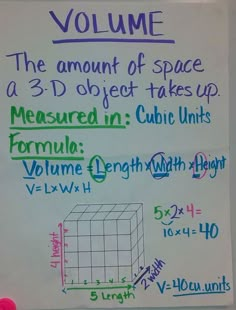 VOLUME
The amount of space
a 3-D object takes up.
Measured in: Cubic Units
Formula:
Volume = Length x Width x Height
V=LxWxH
5x2x4=
10x4=40
4 height
1 2 3 4 5
5 Length
2 width
V=40cu.units